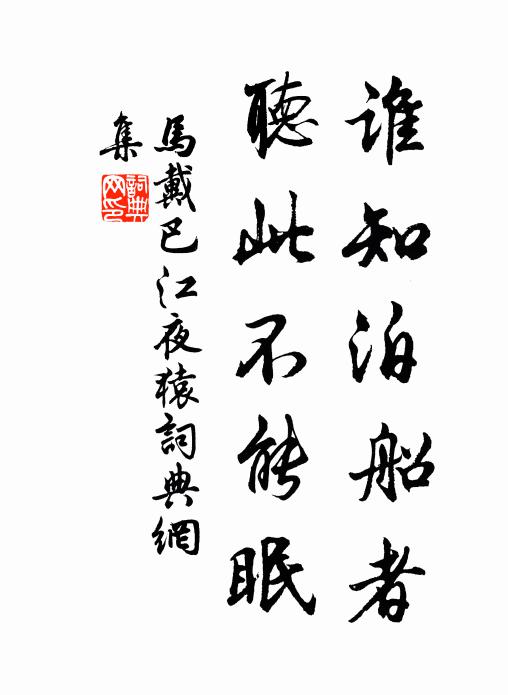 谁知泊船者
聽此不能眠
馬戴巴江夜猿詞典網
集
詞典
网印